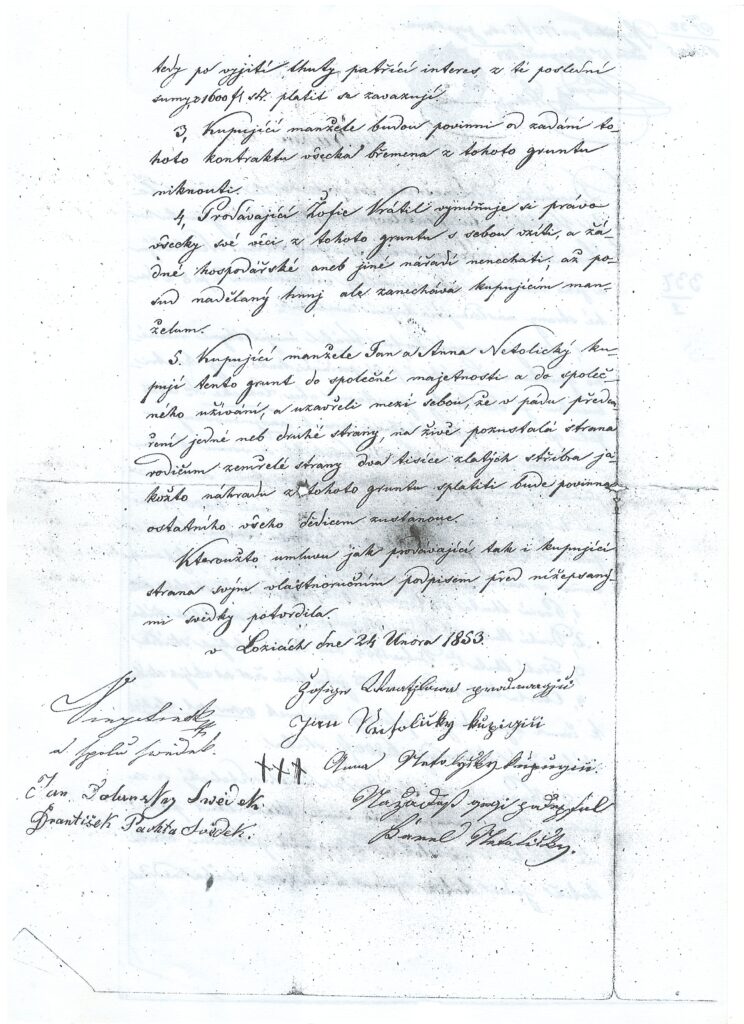 tedy po vyjití lhuty patřící interes z té poslední
sumy p 1600 fl stř. platit se zavazují
3, Kupující manžele budou povinni od zadání to-
hoto kontraktu všecká břemena z tohoto gruntu
niknouti.
4, Prodávající Žofie Vrátil vyminuje si právo
všecky své věci z tohoto gruntu s sebou vzíti, a žá-
dné hospodářské aneb jiné nářadí nenechati, až po-
sud nadělaný hnuj ale zanechává kupujícím man-
želum.
5. Kupující manžele Jan a Anna Netolický ku-
pují tento grunt do společné majetnosti a do společ-
ného užívání, a uzavřeli mezi sebou, že v pádu předem
ření jedné neb druhé strany, na živě pozustalá strana
rodičum zemřelé strany dva tisíce zlatých stříbra ja-
kožto náhradu z tohoto gruntu splatiti bude povinna
ostatního všeho dědicem zustanouc.
Kteroužto umluvu jak prodávající tak i kupující
strana svým vlastnoručním podpisem před nížepsaný-
mi svědky potvrdila.
v Lozicách dne 24 Února 1853.
Žofige Wratilowa prodawagjcí
Jan Netolicky kupigicí
a spolu swědek.
+++ Anna Netolyčky kupugicí.
Jan Polanzky Swědek.
Na žádost gegi podepsal
František Pachta Svědek.
Karel Netoličky.